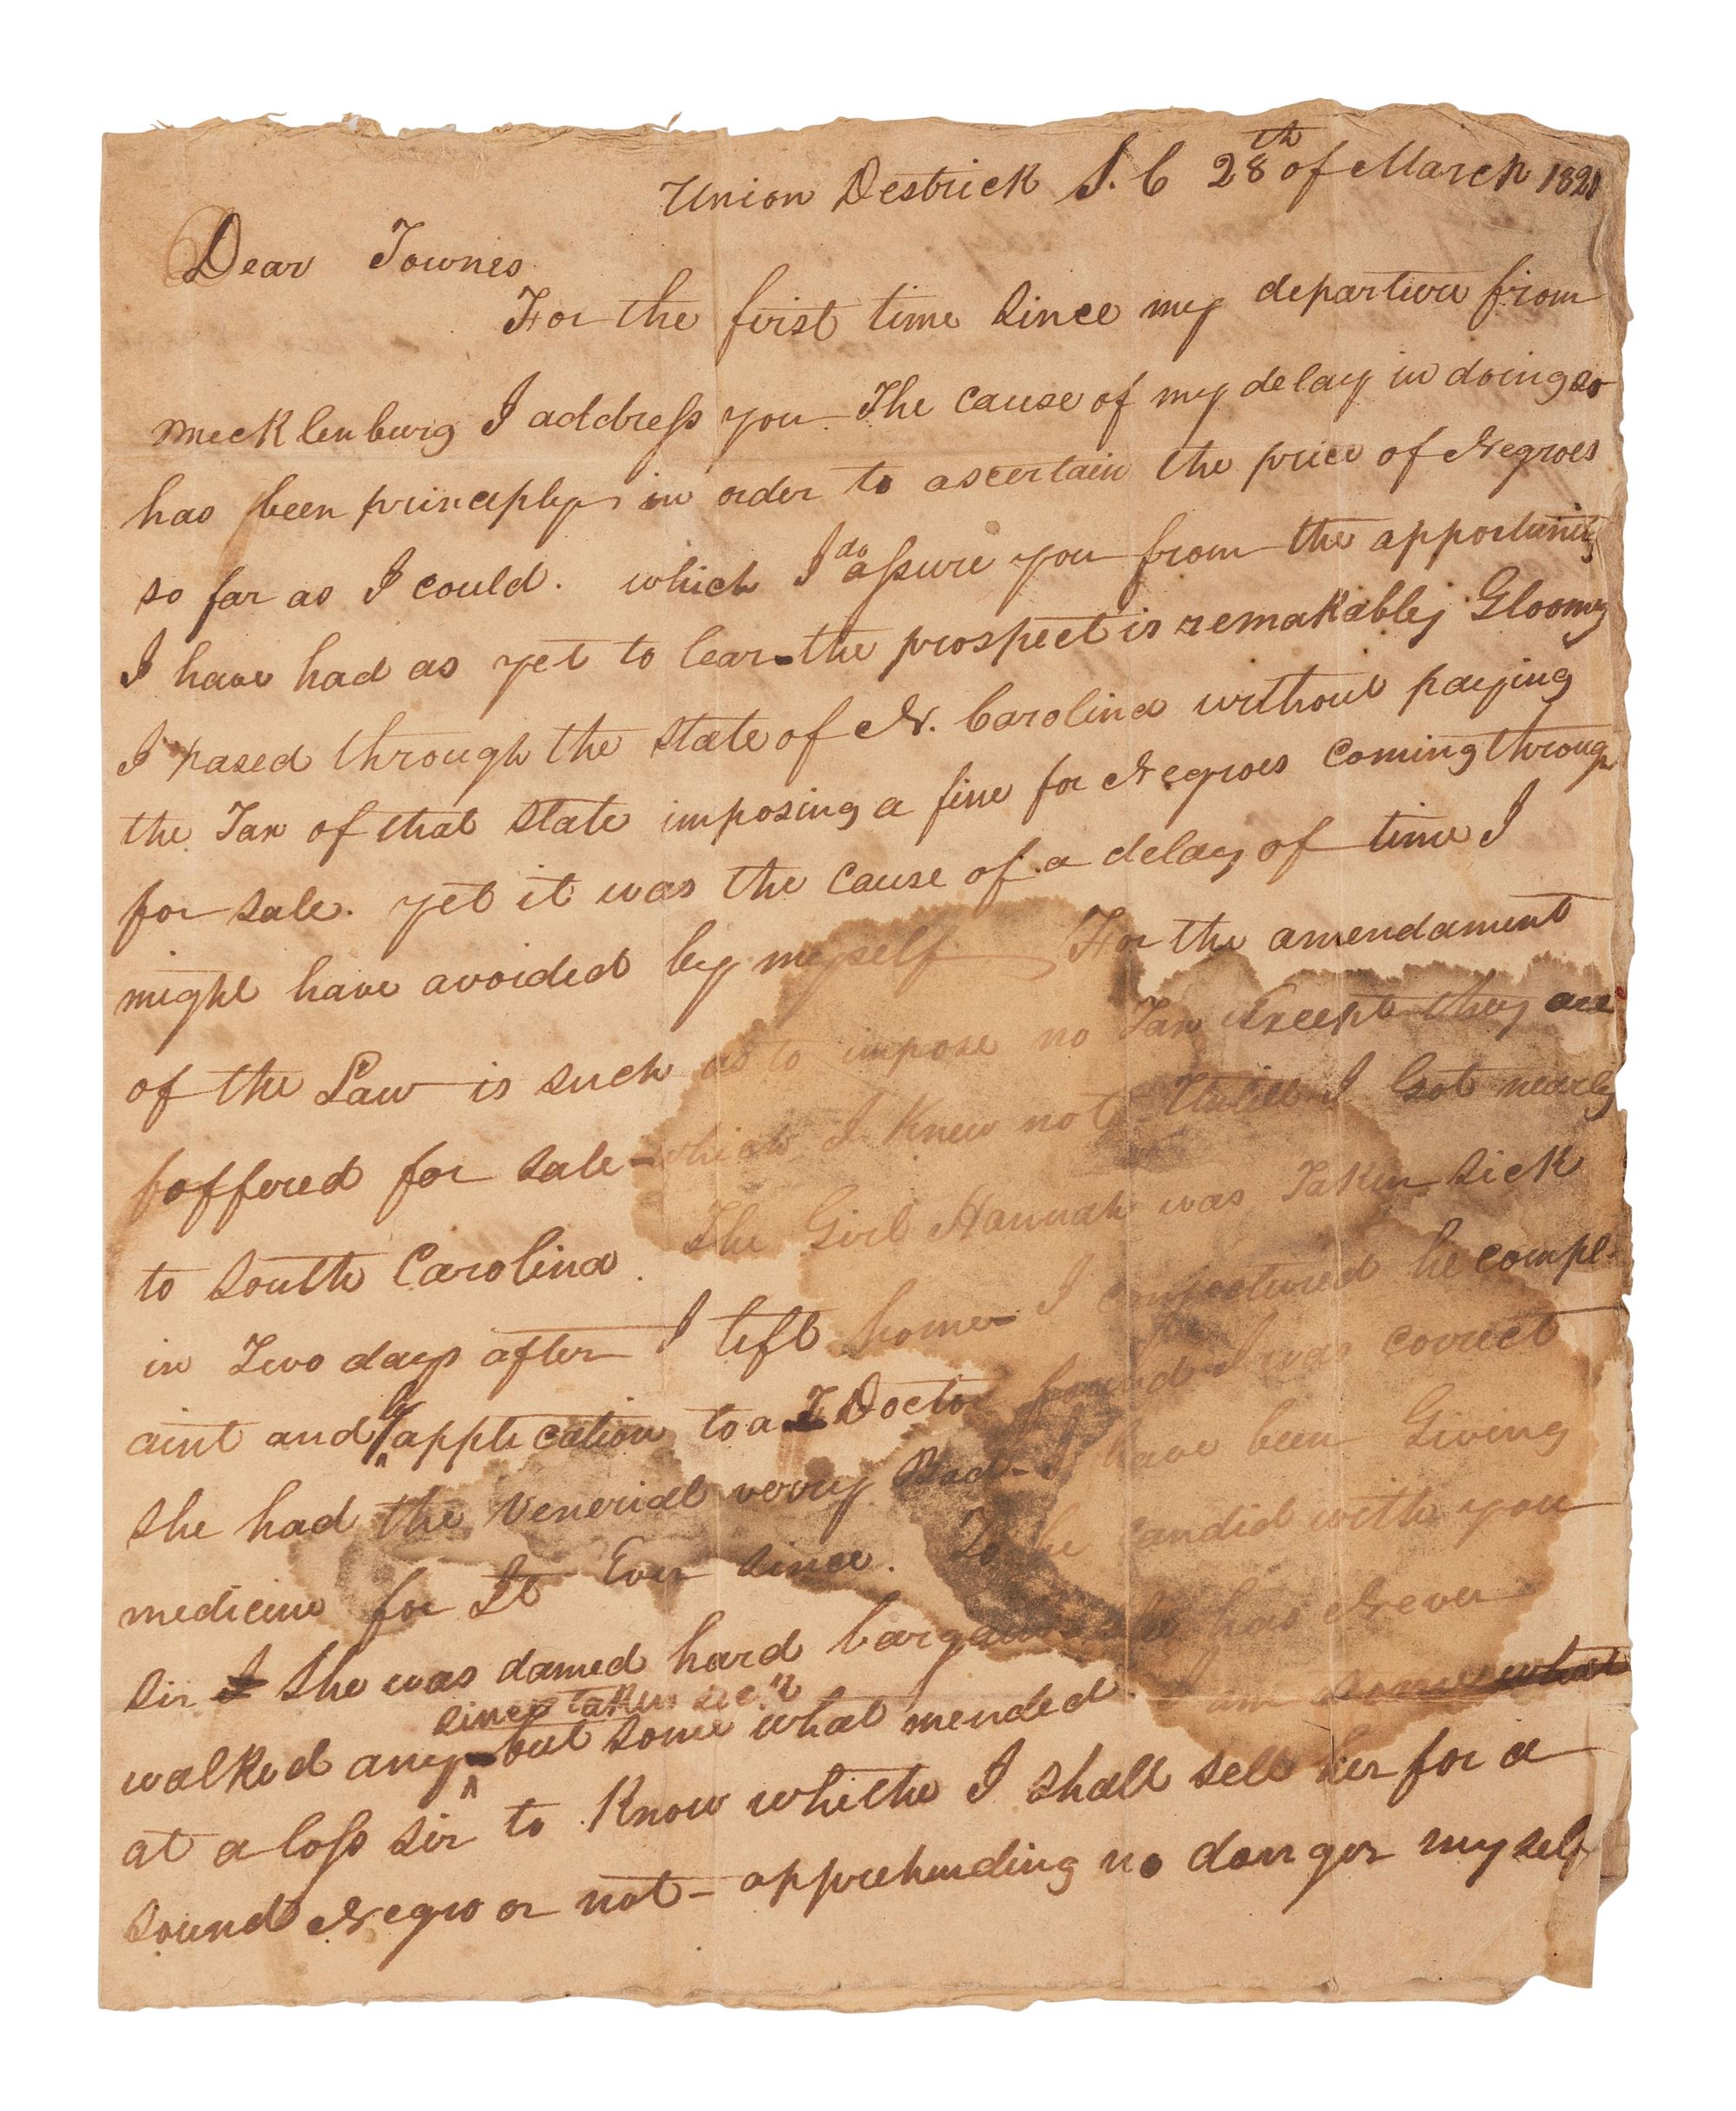 Union Destrick S. C 28th of March 1821
Dear Townes
For the first time since my departure from
Mecklenburg I address you. The cause of my delay in doing so
has been principly in order to ascertain the price of Negroes
so far as I could. which I do assure you from the apportunity
I have had as yet to lear-the prospect is remakably Gloomy
I pased through the state of N. Carolina without paying
the Tax of that state imposing a fine for Negroes coming through
for sale. yet it was the cause of a delay of time I
might have avoided by myself For the amendament
of the Law is such as to impose no Tax Except they are
offered for sale-which I knew not Untill I Got nearly
to South Carolina. The Girl Hannah was Taken sick
in Two days after I left home I conjectured he compl-
aint and by application to a Doctor found I was correct
She had the venerial verry Bad-I have been Giving
medicine for It Ever since. To be candid with you
sir She was damed hard bargain she has Never
walked any since taken sick but some what mended. I am somewhat
at a loss sir to Know whithe I shall sell her for a
sound Negro or not-apprehending no danger myself